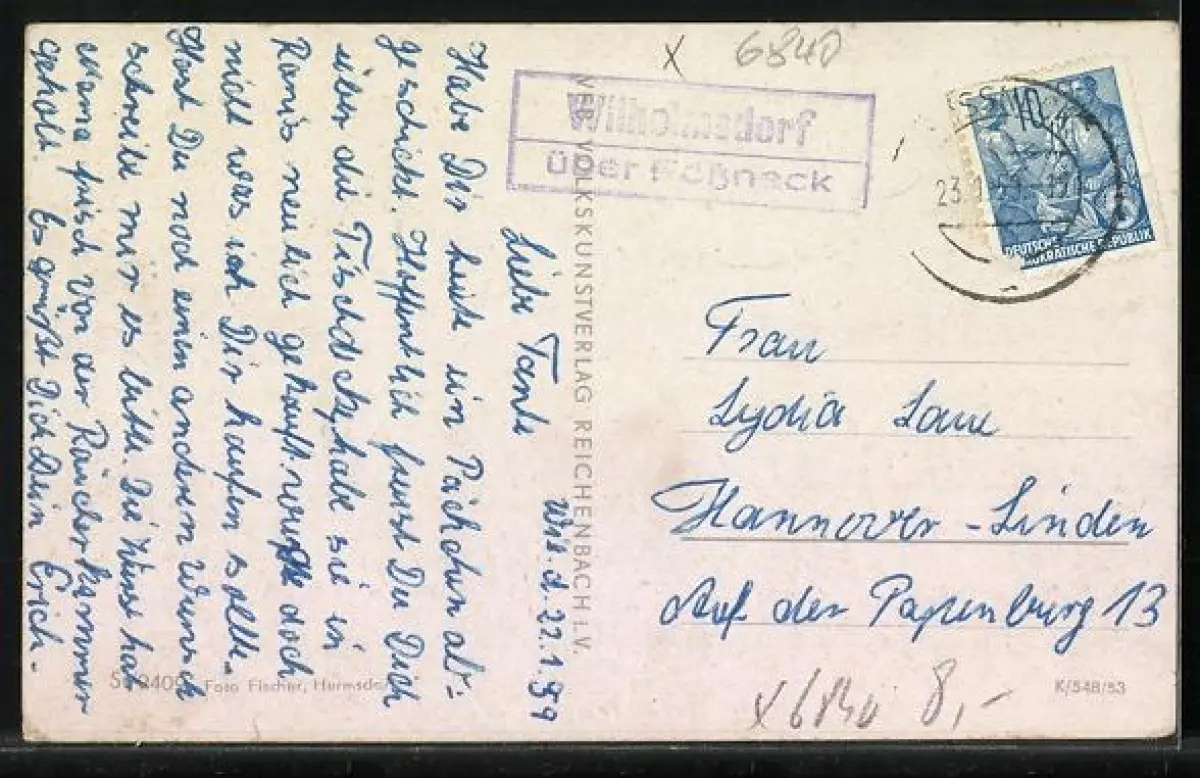 Wil. d. 22.1.59
Liebe Tante
Habe Dir heute ein Päckchen ab-
geschickt. Hoffentlich freust Du Dich
über die Tischdecke, habe sie in
Ranis neulich gekauft. wußte doch
nicht was ich Dir kaufen sollte.
Hast Du noch einen anderen Wunsch
schreibe mir es bitte. Die Wurst hat
Mama frisch von der Räucherkammer
geholt. Es grüßt Dich Dein Erich.
Foto Fischer, Hermsdorf
VEB VOLKSKUNSTVERLAG REICHENBACH i.V.
x 6840
Wilhelmsdorf
über Pößneck
10
DEUTSCHE
DEMOKRATISCHE REPUBLIK
23.
Frau
Lydia Laue
Hannover-Linden
Auf den Papenberg 13
K/548/53
x 6840 8,-